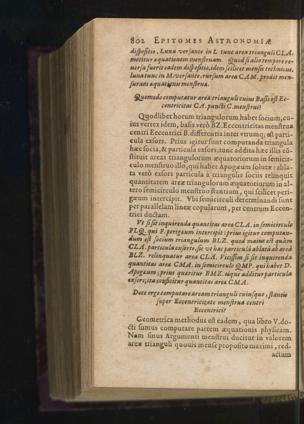 802 EPITOMES ASTRONOMIÆ
dispositio, Luna versante in L tunc area trianguli CLA.
metitur æquationem menstruam. Quod si alio tempore re-
versa fuerit eadem dispositio, idem scilicet mensis technicus,
luna tunc in M. versante, rursum area CAM. prodit men-
suram æquationis menstruæ.
Quomodo computatur area trianguli cuius Basis est Ec-
centricitas CA. puncti C. menstrui?
Quodlibet horum triangulorum habet socium, cu-
ius vertex idem, basis verò BZ. Eccentricitas menstrua
centri Eccentrici B. differentia inter utrumq; est parti-
cula exsors. Prius igitur sunt computanda triangula
hæc socia, & particula exsors: tunc addita hæc illis co͂-
stituit areas triangulorum æquatoriorum in semicir-
culo menstruo illo, qui habet Apogæum solutæ: abla-
ta verò exsors particula à triangulis sociis relinquit
quantitatem areæ triangulorum æquatoriorum in al-
tero semicirculo menstruo
gæum intercipit. Vbi semicirculi determinandi sunt
per parallelam lineæ copularum, per centrum Eccen-
trici ductam.
Vt si sit inquirenda quantitas areæ CLA. in semicirculo
PLQ. qui F. perigæum intercipit: prius igitur computan-
dum est socium triangulum BLZ. quod maius est quàm
CLA. particula exsorte, sic vt hac particulâ ablatâ ab areâ
BLZ. relinquatur area CLA. Vicissim si sit inquirenda
quantitas areæ CMA. in semicirculo QMP. qui habet D.
Apogæum: prius quæritur BMZ. eique additur particula
exsors, ita constituitur quantitas areæ CMA.
Doce ergo computare aream trianguli cuiusque, stantis
super Eccentricitate menstrua centri
Eccentrici?
Geometrica methodus est eadem, qua libro V. do-
cti sumus computare partem æquationis physicam.
Nam sinus Argumenti menstrui ducitur in valorem
areæ trianguli quouis mense proposito maximi, red-
actum